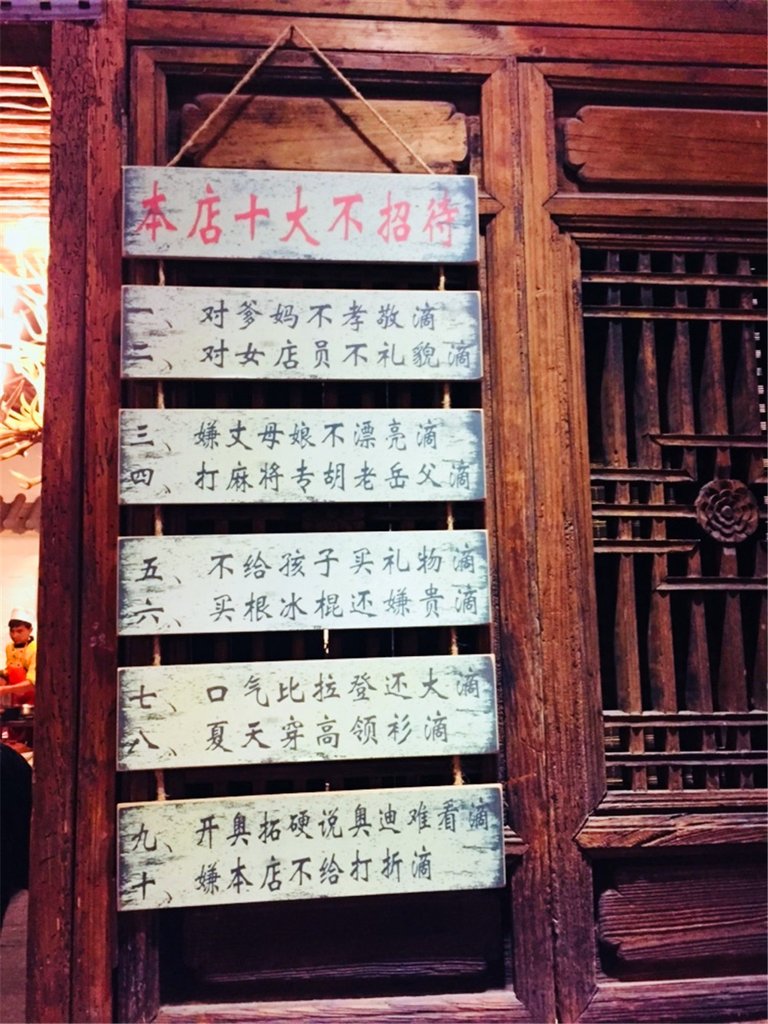 本店十大不招待
一、对爹妈不孝敬滴
二、对女店员不礼貌滴
三、嫌丈母娘不漂亮滴
四、打麻将专胡老岳父滴
五、不给孩子买礼物滴
六、买根冰棍还嫌贵滴
七、口气比拉登还大滴
八、夏天穿高领衫滴
九、开奥拓硬说奥迪难看滴
十、嫌本店不给打折滴